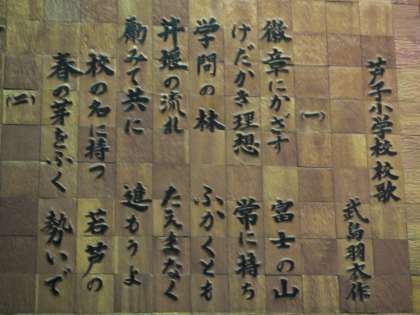 芦子小学校校歌
武島羽衣作
(一)
徽章にかざす 富士の山
けだかき理想 常に持ち
学問の林 ふかくとも
井堰の流れ たえまなく
励みて共に 進もうよ
校の名に持つ 若芦の
春の芽をふく 勢いで
(二)